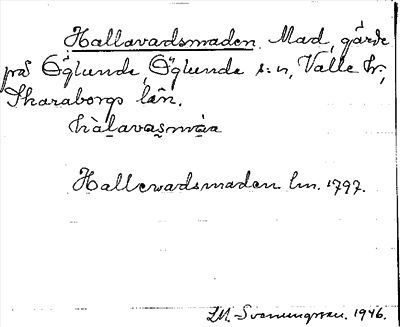 Hallavadsmaden. Mad, gärde
på Öglunda, Öglunda s:n, Valle hd,
Skaraborgs län.
hàlavasmáa
Hallewadsmaden lm. 1797.
J.M. Svenungsson. 1946.